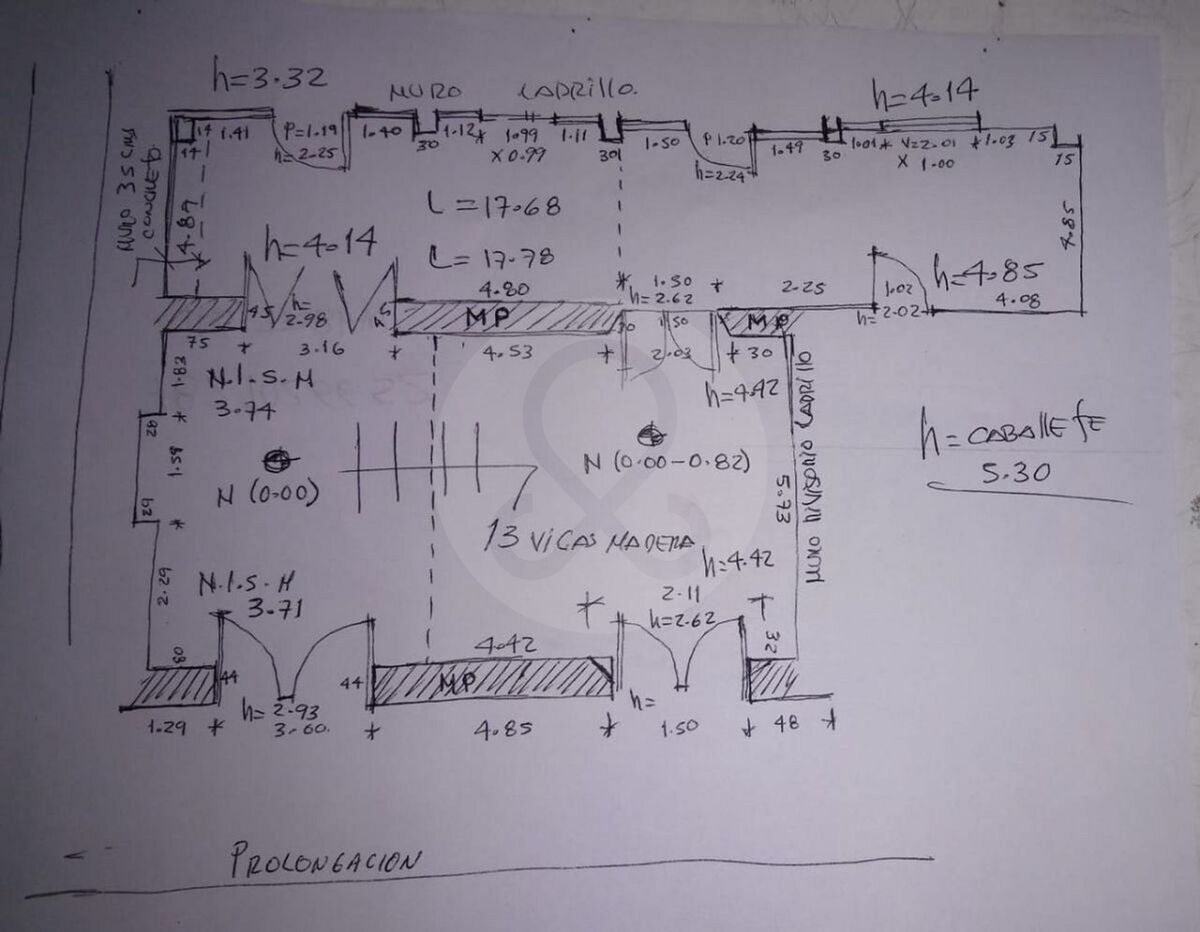 h=3.32
MURO LADRILLO.
h=4.14
14
1.41
P=1.19
h=2.25
1.40
30
1.12
1.99
X 0.99
1.11
30
1.50
P 1.20
h=2.24
1.49
30
1.01
V=2.01
X 1.00
1.03
15
15
14
MURO 35 cms
CONCRETO
4.89
L=17.68
L=17.78
h=4.14
4.85
45
h=
2.98
45
4.80
1.50
h=2.62
2.25
1.02
h=2.02
h=4.85
4.08
MP
30
1.50
MP
75
3.16
4.53
2.03
30
1.83
N.I.S.M
3.74
h=4.42
MURO DIVISORIO LADRILLO
h= CABALLETE
5.30
1.59
N (0.00)
N (0.00-0.82)
5.73
13 VIGAS MADERA
h=4.42
2.29
N.I.S.M
3.71
2.11
h=2.62
32
80
4.42
44
44
MP
h=2.93
h=
1.29
3.60
4.85
1.50
48
PROLONGACION